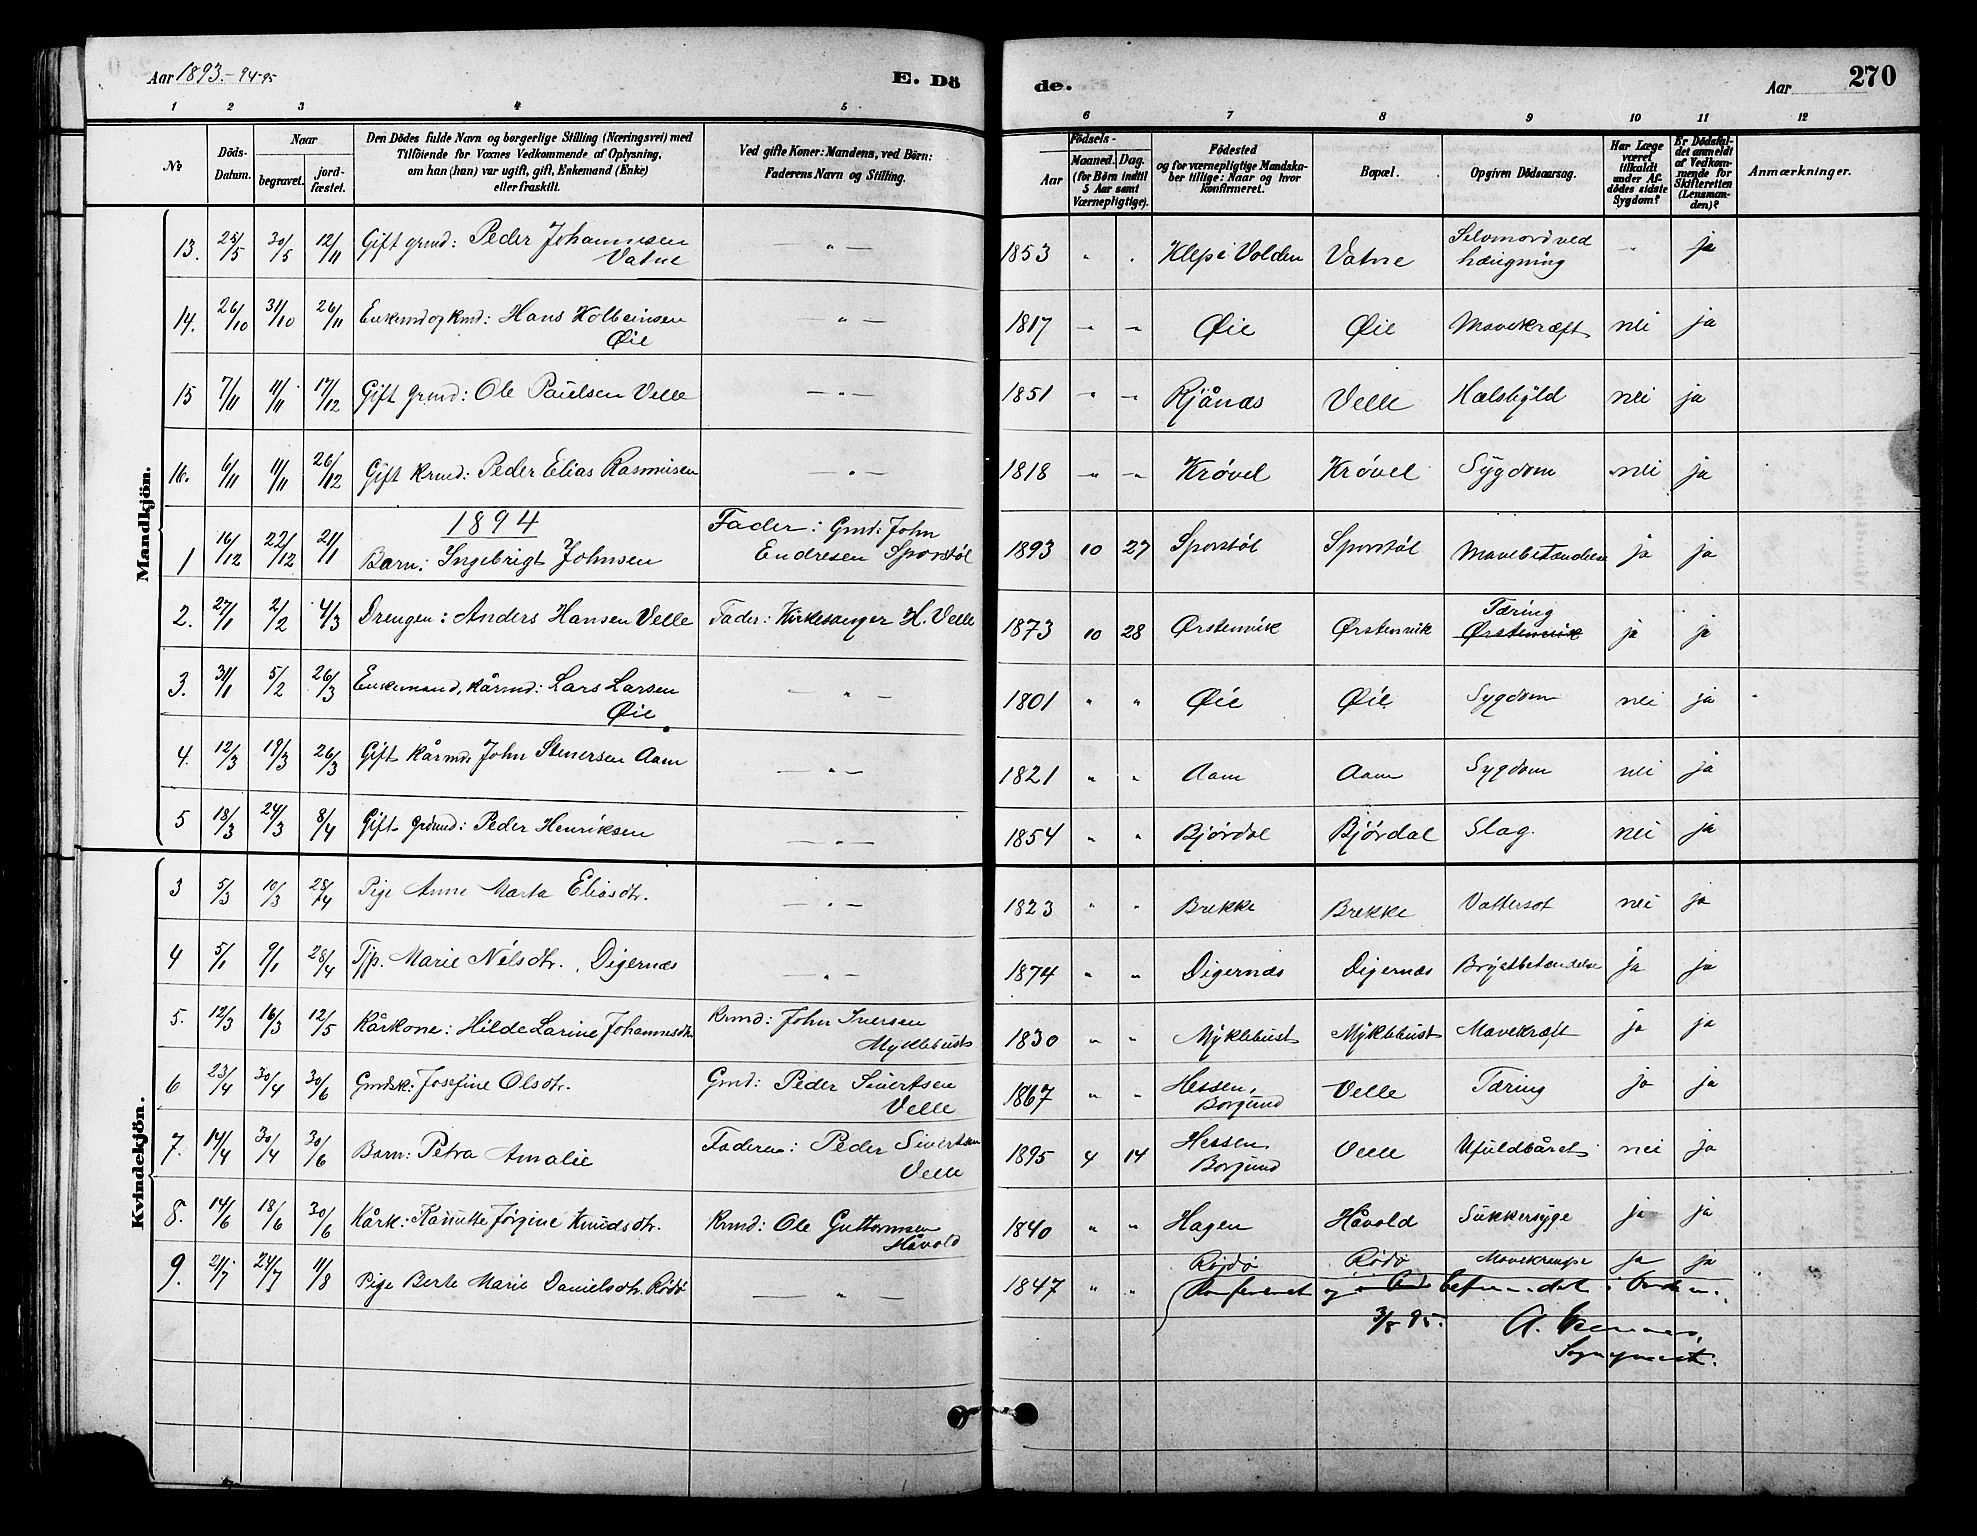 Aar 1893.-94-95
E. Dö
de.
Aar
270
1 2 3 4 5
6 7 8 9 10 11 12
No
Döds-
Datum.
Naar
begravet.
jord-
fæstet.
Den Dödes fulde Navn og borgerlige Stilling (Næringsvei) med
Tilföiende for Voxnes Vedkommende af Oplysning,
om han (hun) var ugift, gift, Enkemand (Enke)
eller fraskilt.
Ved gifte Koner: Mandens, ved Börn:
Faderens Navn og Stilling.
Födsels-
Aar
Maaned. Dag.
(for Börn indtil
5 Aar samt
Værnepligtige).
Födested
og for værnepligtige Mandska-
ber tillige: Naar og hvor
konfirmeret.
Bopæl.
Opgiven Dödsaarsag.
Har Læge
været
tilkaldt
under Af-
dödes sidste
Sygdom?
Er Dödsfal-
det anmeldt
af Vedkom-
mende for
Skifteretten
(Lensman-
den)?
Anmærkninger.
Mandkjön.
13. 25/5 30/5 12/11 Gift grmd: Peder Johannesen
Vatne
— " — 1853 " " Klep i Volden Vatne Selvmord ved
hængning " ja
14. 26/10 31/10 26/11 Enkemd og kmd: Hans Kolbeinsen
Øie
— " — 1817 " " Øie Øie Mavekræft nei ja
15 7/11 11/11 17/12 Gift grmd: Ole Paulsen Velle — " — 1851 " " Rjånæs Velle Halsbyld nei ja
16. 6/11 11/11 26/12 Gift krmd: Peder Elias Rasmusen — " — 1818 " " Krøvel Krøvel Sygdom nei ja
1894
1 16/12 22/12 21/1 Barn: Ingebrigt Johnsen Fader: Gmd: John
Endresen Sporstøl 1893 10 27 Sporstøl Sporstøl Mavebetændelse ja ja
2. 27/1 2/2 4/3 Drengen: Anders Hansen Velle Fader: Kirkesanger H. Velle 1873 10 28 Ørstenvik Ørstenvik Tæring
Ørstenvik ja ja
3. 31/1 5/2 26/3 Enkemand, kårmd: Lars Larsen
Øie
— " — 1801 " " Øie Øie Sygdom nei ja
4. 12/3 19/3 26/3 Gift kårmd John Stenersen Aam — " — 1821 " " Aam Aam Sygdom nei ja
5 18/3 24/3 8/4 Gift grdmd: Peder Henriksen — " — 1854 " " Bjørdal Bjørdal Slag. nei ja
Kvindekjön.
3 5/3 10/3 28/4 Pige Anne Marta Eliasdtr. — " — 1823 " " Brekke Brekke Vattersot nei ja
4 5/1 9/1 28/4 Tjp. Marie Nilsdtr. Digernæs — " — 1874 " " Digernæs Digernæs Brystbetændelse ja ja
5. 12/3 16/3 12/5 Kårkone: Hilde Larine Johannesdtr. Krmd: John Iversen
Myklebust 1830 " " Myklebust Myklebust Mavekræft ja ja
6 23/4 30/4 30/6 Gmdsk: Josefine Olsdtr. Gmd: Peder Sivertsen
Velle 1867 " " Hessen,
Borgund Velle Tæring ja ja
7. 14/4 30/4 30/6 Barn: Petra Amalie Faderen: Peder Sivertsen
Velle 1895 4 14 Hessen
Borgund Velle Ufuldbåret nei ja
8. 14/6 18/6 30/6 Kårk: Kanutte Jørgine Knudsdtr. Krmd: Ole Guttormsen
Håvold 1840 " " Hagen Håvold Sukkersyge ja ja
9. 21/7 24/7 11/8 Pige Berte Marie Danielsdtr. Rødø — " — 1847 " " Rødø Rødø Mavekrampe ja ja
Konfereret og befundet i Orden.
3/8 95.
Sogneprest.